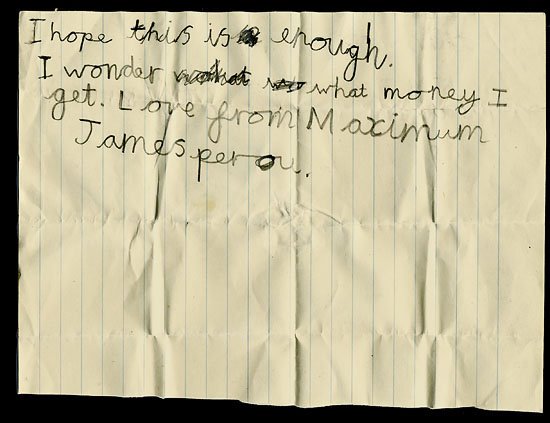 I hope this is enough.
I wonder what money I
get. Love from Maximum
James perou.